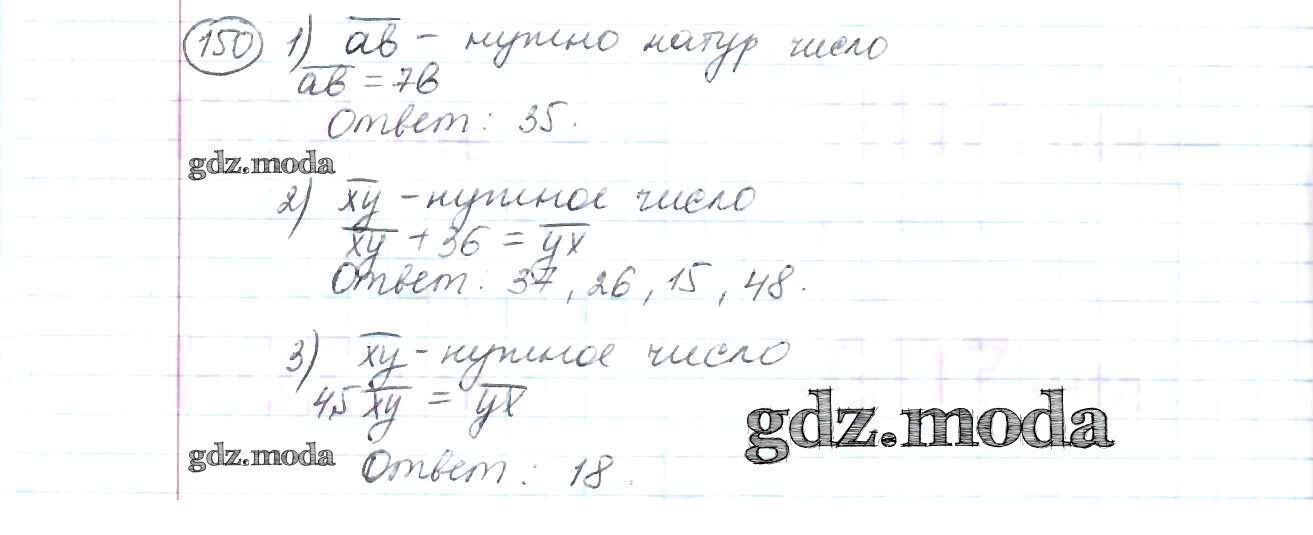 150 1) ab – нужно натур число
ab = 7b
Ответ: 35.
gdz.moda
2) xy – нужное число
xy + 36 = yx
Ответ: 37, 26, 15, 48.
3) xy – нужное число
4,5 xy = yx
gdz.moda
gdz.moda
Ответ: 18.